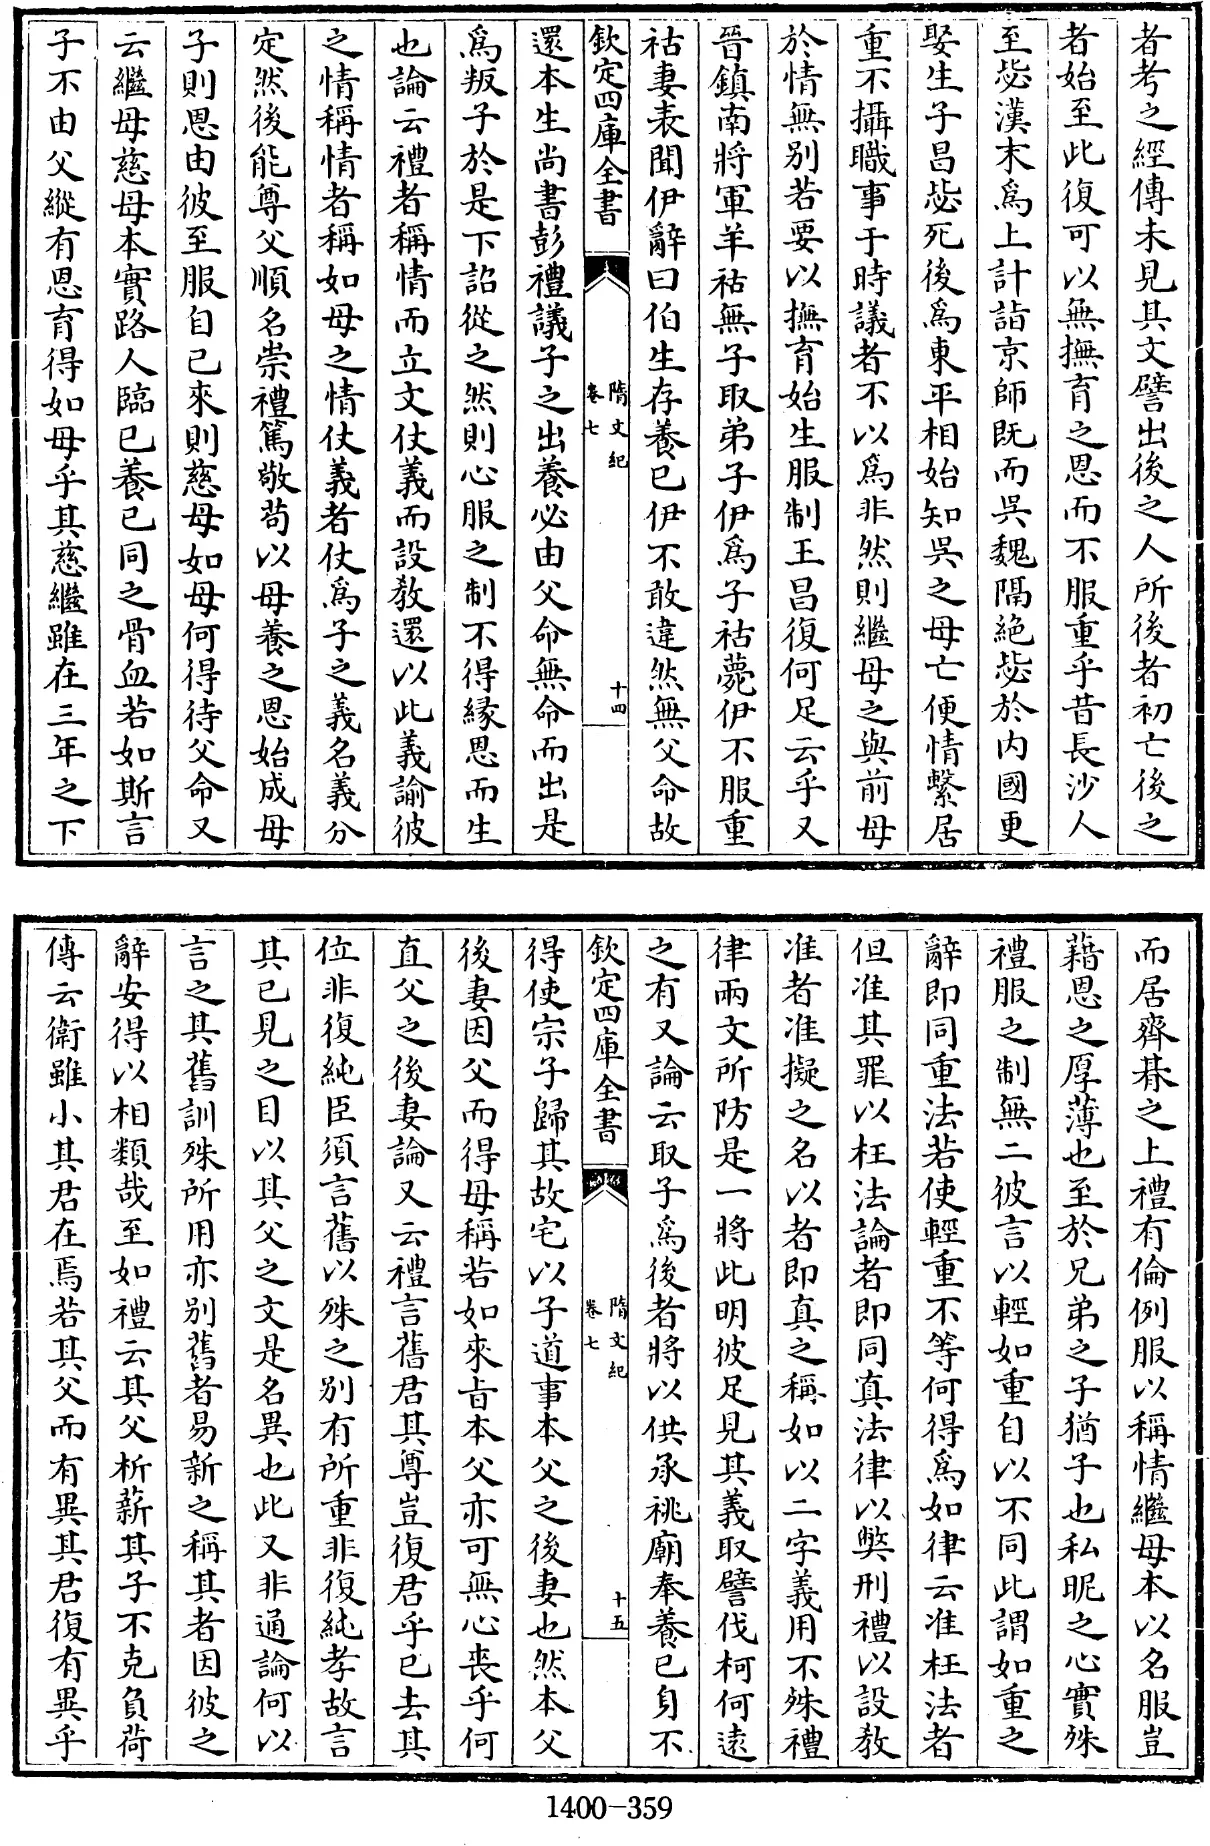 者考之經傳未見其文譬出後之人所後者初亡後之
者始至此復可以無撫育之恩而不服重乎昔長沙人
至毖漢末爲上計詣京師既而吳魏隔絶毖於内國更
娶生子昌毖死後爲東平相始知吳之母亡便情繫居
重不攝職事于時議者不以爲非然則繼母之與前母
於情無别若要以撫育始生服制王昌復何足云乎又
晉鎮南將軍羊祜無子取弟子伊爲子祜薨伊不服重
祜妻表聞伊辭曰伯生存養已伊不敢違然無父命故
欽定四庫全書
隋文紀
卷七
十四
還本生尚書彭禮議子之出養必由父命無命而出是
爲叛子於是下詔從之然則心服之制不得緣恩而生
也論云禮者稱情而立文仗義而設教還以此義諭彼
之情稱情者稱如母之情仗義者仗爲子之義名義分
定然後能尊父順名崇禮篤敬苟以母養之恩始成母
子則恩由彼至服自己來則慈母如母何得待父命又
云繼母慈母本實路人臨已養已同之骨血若如斯言
子不由父縱有恩育得如母乎其慈繼雖在三年之下
而居齊朞之上禮有倫例服以稱情繼母本以名服豈
藉恩之厚薄也至於兄弟之子猶子也私昵之心實殊
禮服之制無二彼言以輕如重自以不同此謂如重之
辭即同重法若使輕重不等何得爲如律云准枉法者
但准其罪以枉法論者即同真法律以弊刑禮以設教
准者准擬之名以者即真之稱如以二字義用不殊禮
律兩文所防是一將此明彼足見其義取譬伐柯何遠
之有又論云取子爲後者將以供承祧廟奉養已身不
欽定四庫全書
隋文紀
卷七
十五
得使宗子歸其故宅以子道事本父之後妻也然本父
後妻因父而得母稱若如來旨本父亦可無心喪乎何
直父之後妻論又云禮言舊君其尊豈復君乎已去其
位非復純臣須言舊以殊之别有所重非復純孝故言
其已見之目以其父之文是名異也此又非通論何以
言之其舊訓殊所用亦别舊者易新之稱其者因彼之
辭安得以相類哉至如禮云其父析薪其子不克負荷
傳云衛雖小其君在焉若其父而有異其君復有異乎
1400-359